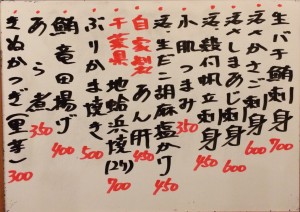 生バチ鮪刺身 700
活さかさご刺身 600
活しまあじ刺身 600
活殻付帆立刺身 450
小肌つまみ 350
活生だこ胡麻塩かけ 450
自家製 あん肝 450
千葉県 地蛤浜焼(2ケ) 700
ぶりかま焼き 500
鮪竜田揚げ 400
あら煮 350
きぬかつぎ(里芋) 300